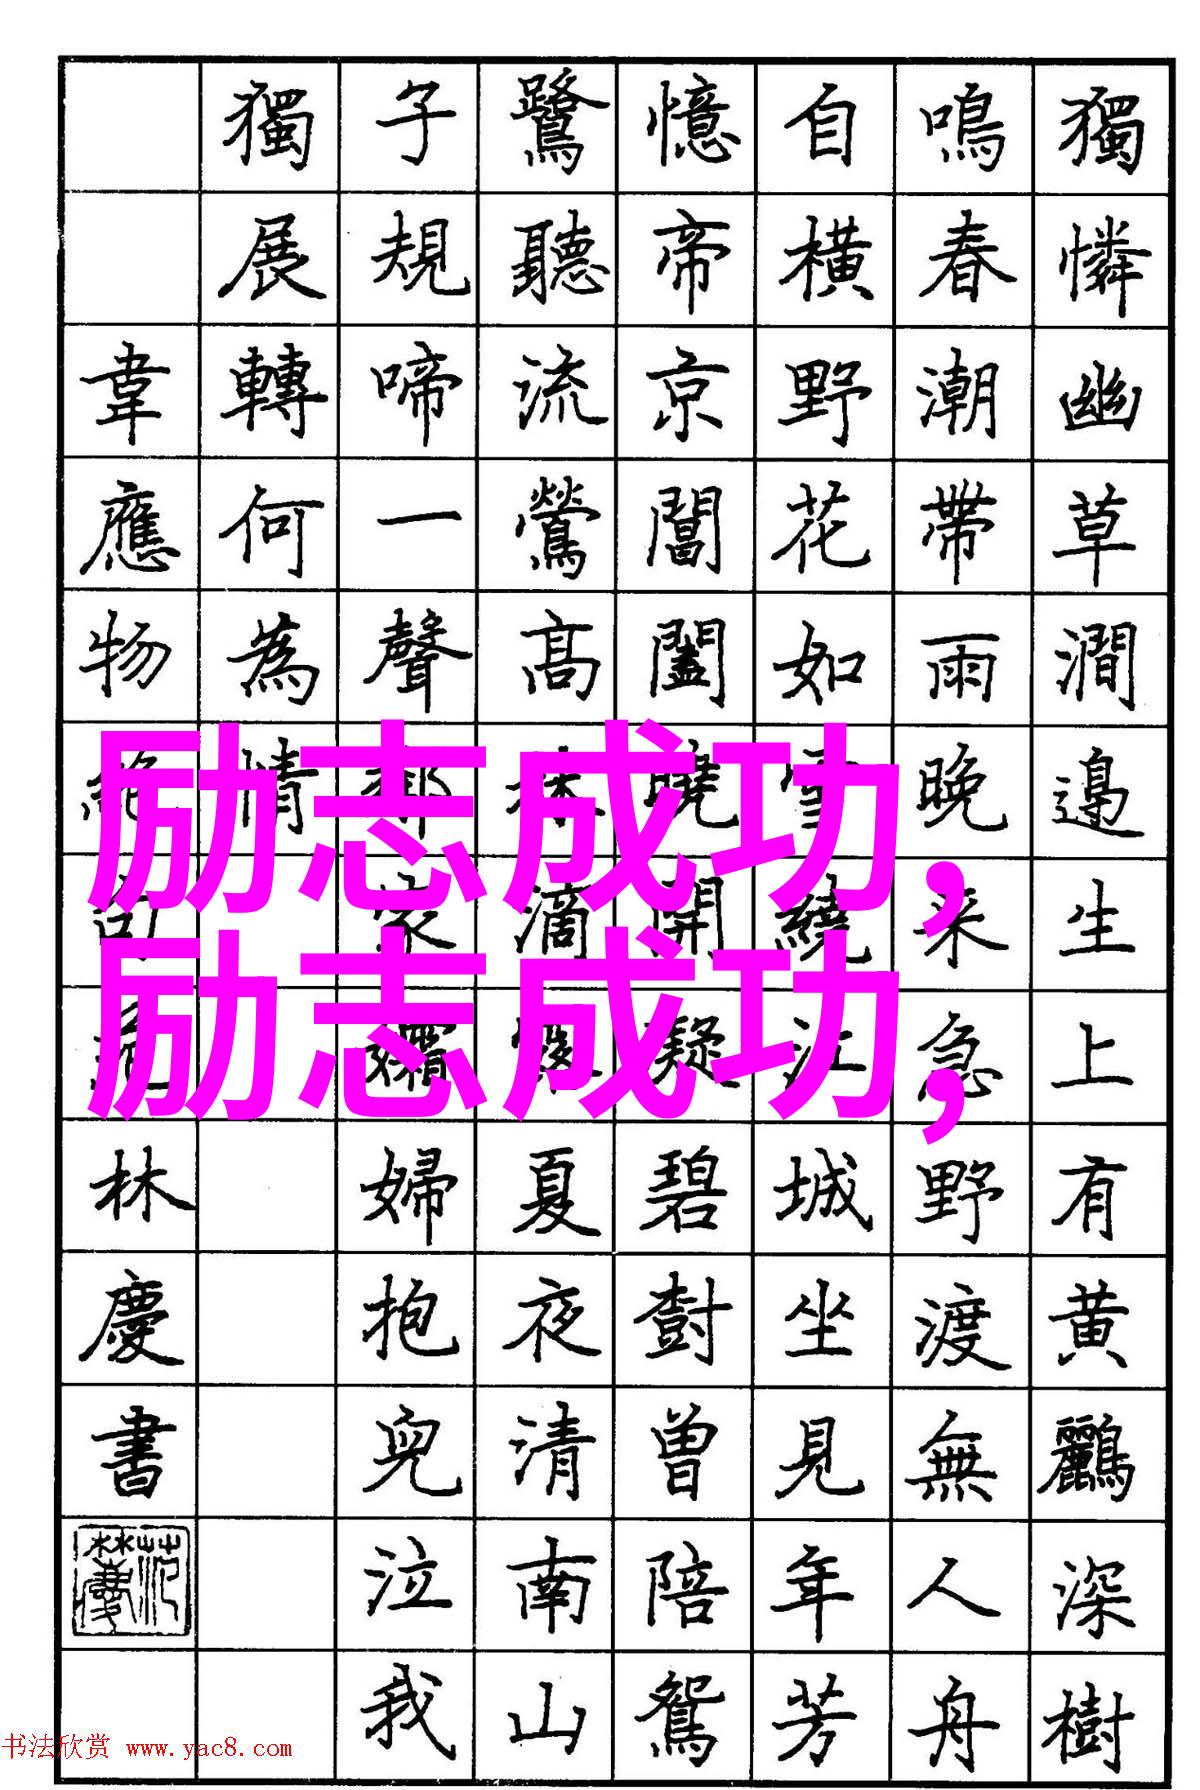 獨憐幽草澗邊生上有黄鸝深樹
鳴春潮帶雨晚来急野渡無人舟
自横野花如雪繞江城坐見年芳
憶帝京閶闔曉開凝碧樹曾陪鴛
鷺聽流鶯高林滴露夏夜清南山
子規啼一聲鄰家孀婦抱兒泣我
獨展轉何為情
韋應物絶句范林慶書
励志成功,
励志成功,
书法欣赏 www.yac8.com